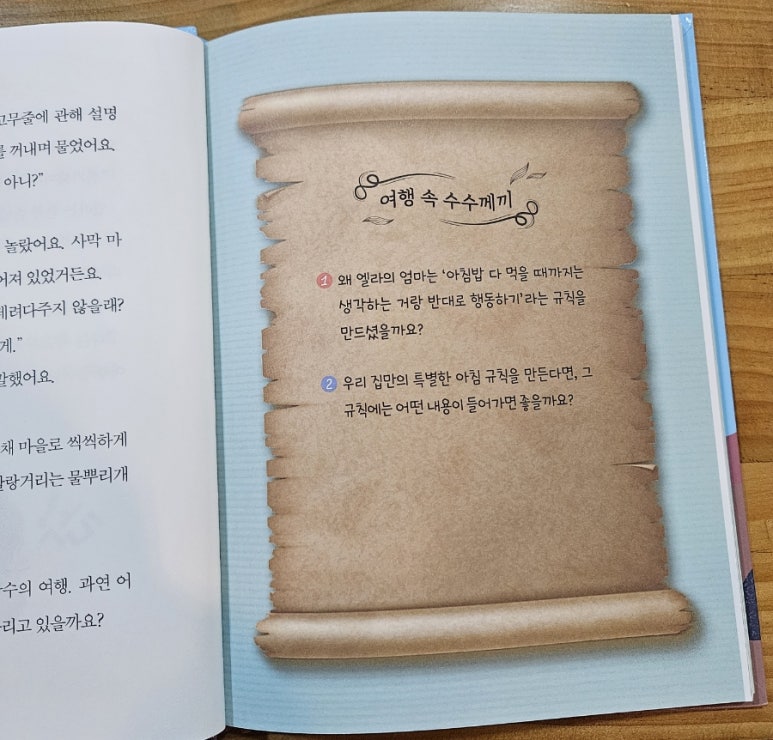 고무줄에 관해 설명
꺼내며 물었어요.
아니?”
놀랐어요. 사막 마
어져 있었거든요.
데려다주지 않을래?
게.”
말했어요.
채 마을로 씩씩하게
랑거리는 물뿌리개
수의 여행. 과연 어
리고 있을까요?
여행 속 수수께끼
1 왜 엘라의 엄마는 ‘아침밥 다 먹을 때까지는
생각하는 거랑 반대로 행동하기’라는 규칙을
만드셨을까요?
2 우리 집만의 특별한 아침 규칙을 만든다면, 그
규칙에는 어떤 내용이 들어가면 좋을까요?